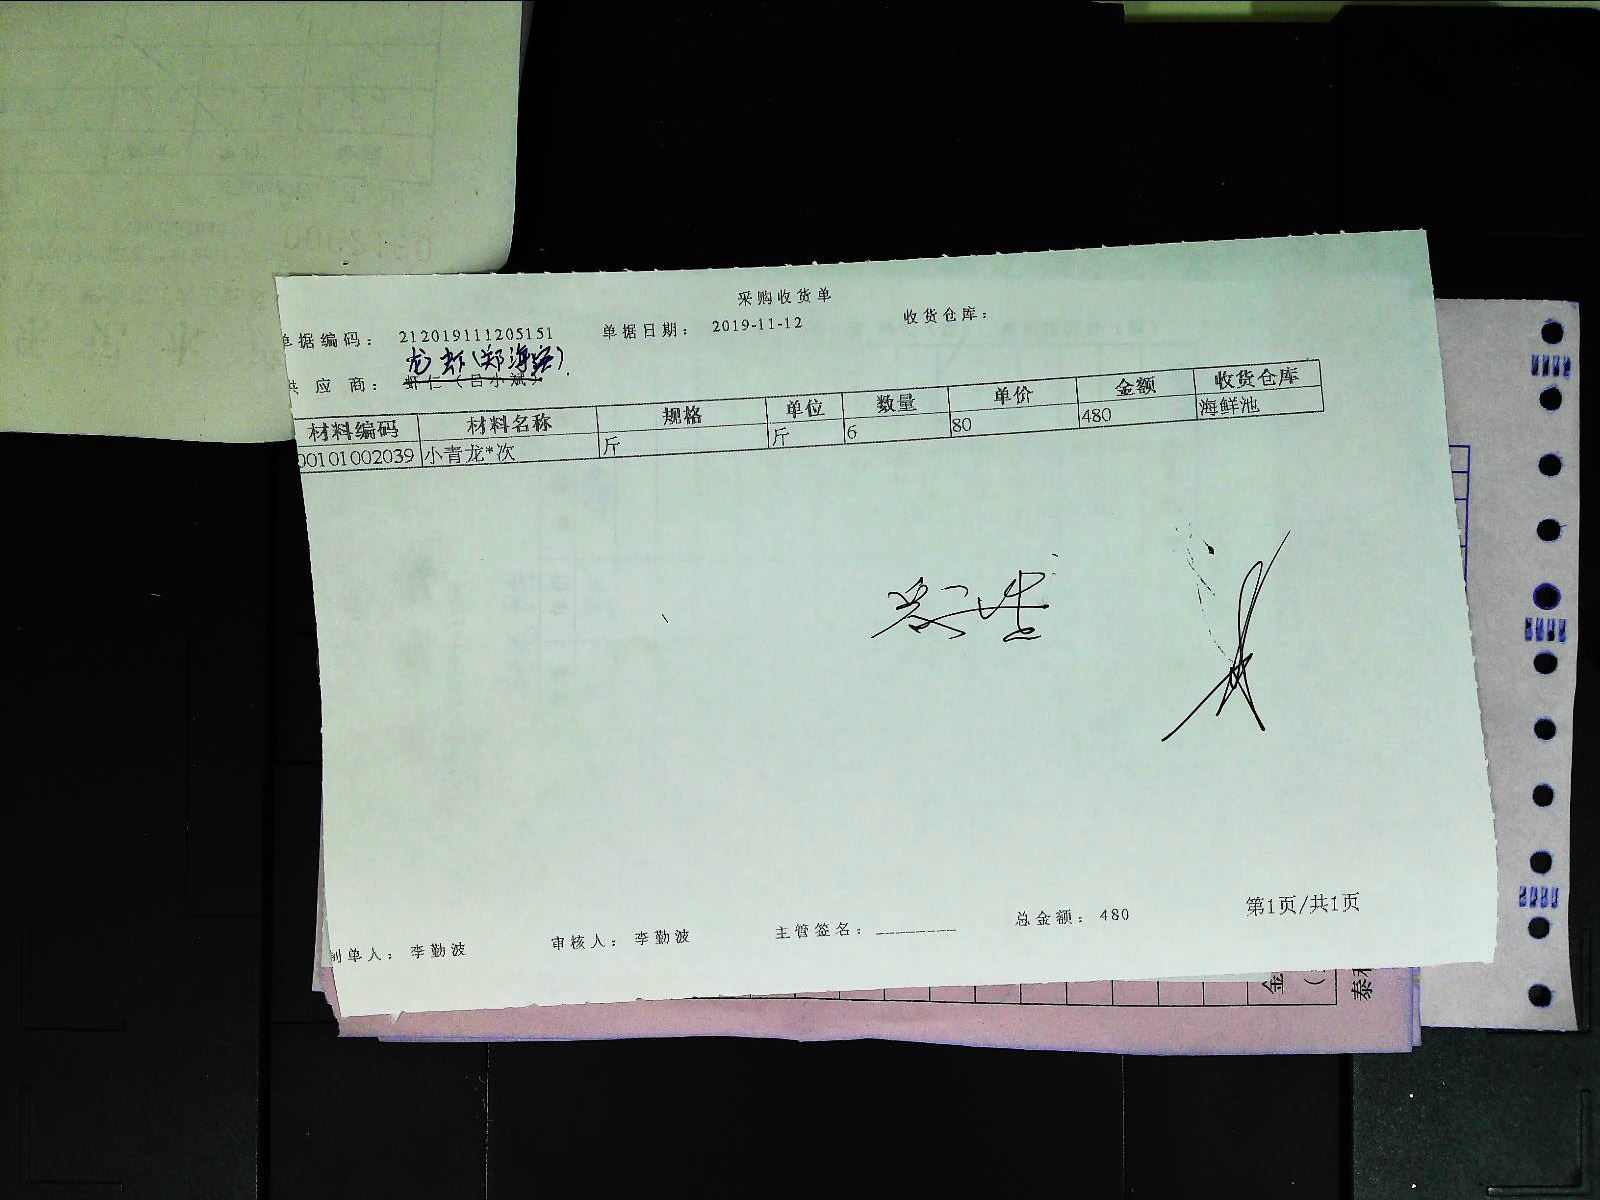 采购收货单
单据编码： 212019111205151 单据日期： 2019-11-12 收货仓库：
龙虾(郑海
供应商： 虾仁（吕小斌）
材料编码 材料名称 规格 单位 数量 单价 金额 收货仓库
00101002039 小青龙*次 斤 斤 6 80 480 海鲜池
制单人： 李勤波 审核人： 李勤波 主管签名： 总金额： 480 第1页/共1页
金
泰